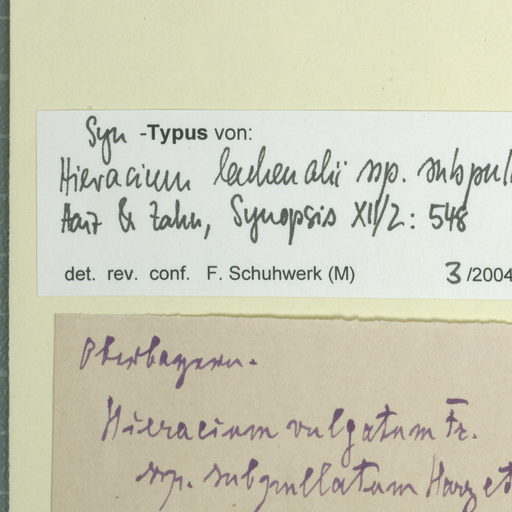 Syn -Typus von:
Hieracium lachenalii ssp.
& Zahn, Synopsis XII/2: 548
det. rev. conf. F. Schuhwerk (M) 3/2004
Oberbayern.
Hieracium vulgatum Fr.
ssp. subpullatum Harz et